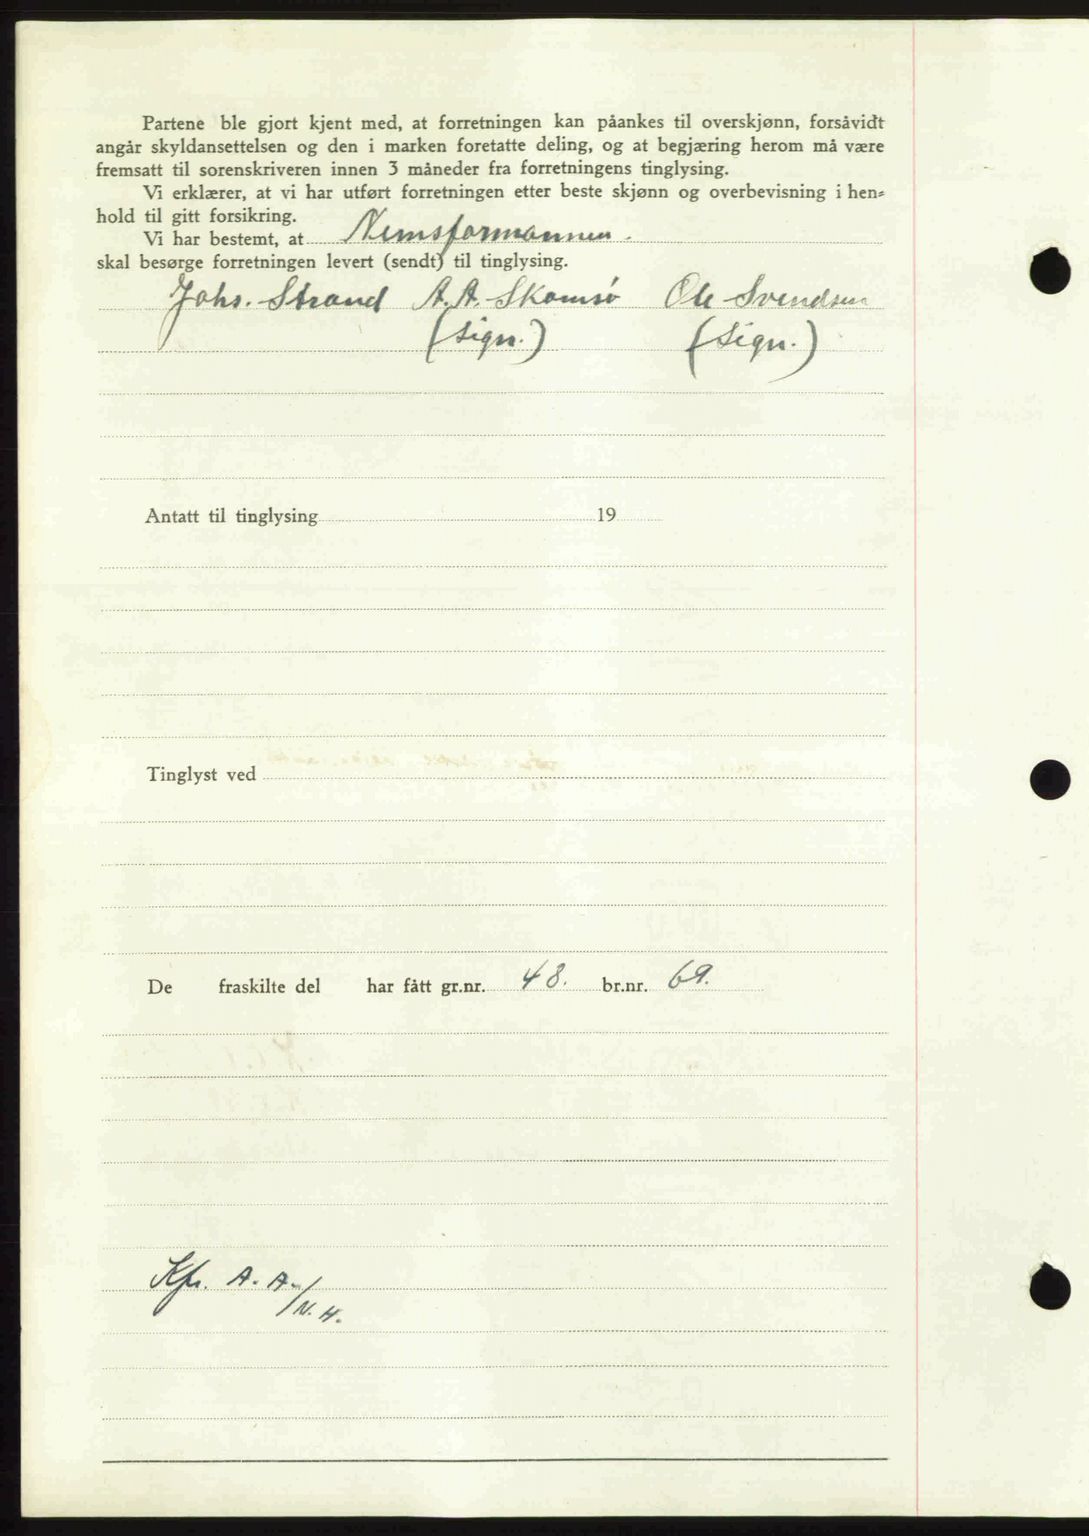 Partene ble gjort kjent med, at forretningen kan påankes til overskjønn, forsåvidt
angår skyldansettelsen og den i marken foretatte deling, og at begjæring herom må være
fremsatt til sorenskriveren innen 3 måneder fra forretningens tinglysing.
Vi erklærer, at vi har utført forretningen etter beste skjønn og overbevisning i hen=
hold til gitt forsikring.
Vi har bestemt, at Nemsformannen.
skal besørge forretningen levert (sendt) til tinglysing.
Johs. Strand A. A. Skomsø Ole Svendsen
(Sign.) (Sign.)
Antatt til tinglysing 19
Tinglyst ved
De fraskilte del har fått gr.nr. 48. br.nr. 69.
Kfr. A. A./N. H.